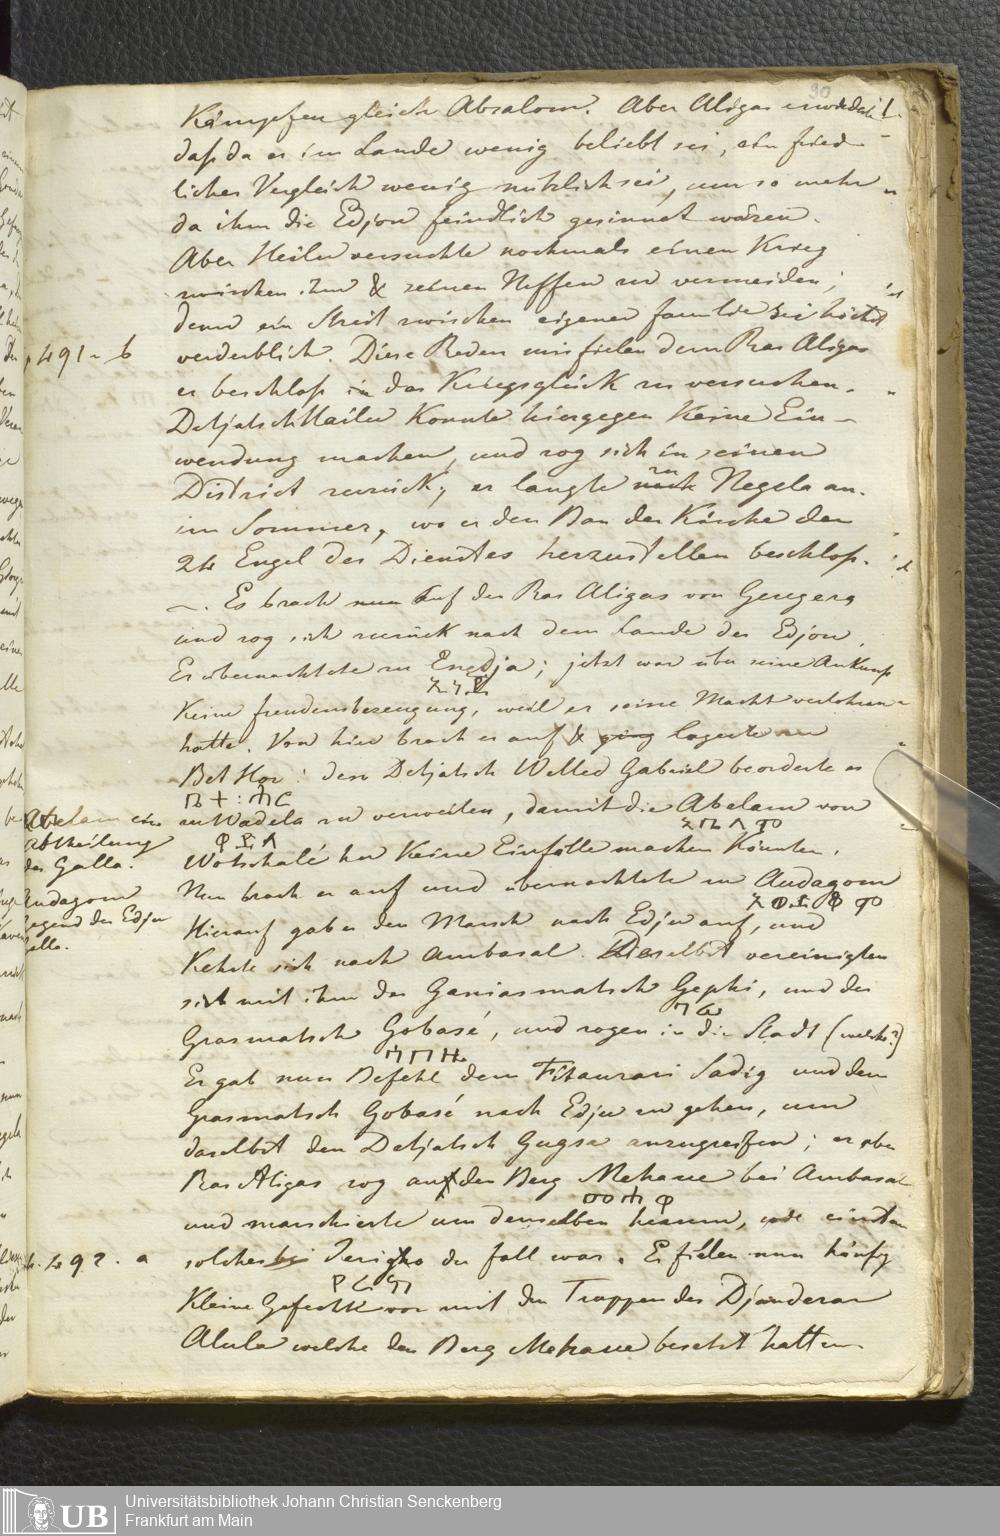 90
Kämpfen gleich Absalom. Aber Aligas erwiederte,
daß da er im Lande wenig beliebt sei, ein fried-
licher Vergleich wenig nützlich sei, um so mehr
da ihm die Edjou feindlich gesinnet wären.
Aber Heilu versuchte nochmals einen Krieg
zwischen ihm & seinen Neffen zu vermeiden,
denn ein Streit zwischen eigener familie sei höchst
p. 491 - b
verderblich. Diese Reden misfielen dem Ras Aligas
er beschloß in das Kriegsglück zu versuchen.
Detjatsch Hailu konnte hiergegen keine Ein-
wendung machen, und zog sich in seinen
District zurück; er langte zu Negela an.
im Sommer, wo er den Bau der Kirche der
24 Engel des Dienstes herzustellen beschloß.
Es brach nun auf der Ras Aligas von Geregera
und zog sich zurück nach dem Lande der Edjou
Er übernachtete zu Enedja; jetzt war über seine Ankunft
keine freudensbezeugung, weil er seine Macht verlohren
hatte. Von hier brach er auf & lagerte zu
Bet Hor: den Detjatsch Welled Gabriel beorderte er
zu Wadela zu verweilen, damit die Abelam von
Abelam eine
Abtheilung
der Galla.
Wotschalé her keine Einfälle machen könnten.
Nun brach er auf und übernachtete zu Audagom
Audagom
Gegend der Edju
Galla.
Hierauf gab er den Marsch nach Edju auf, und
kehrte sich nach Ambasal. Daselbst vereinigten
sich mit ihm der Ganiasmatsch Gephi, und der
Grasmatsch Gobasé, und zogen in die Stadt (welche?)
Er gab nun Befehl dem Fitaurari Sadig und dem
Grasmatsch Gobasé nach Edju zu gehen, um
daselbst den Detjatsch Gugsa anzugreifen; er aber
Ras Aligas zog auf den Berg Mekane bei Ambasal
und marschierte um denselben herum, wie einsten
p. 492. a
solches bei Jericho der fall war. Es fielen nun häufig
kleine Gefechte vor mit den Truppen des Djanderar
Alula welche den Berg Mekane besetzt hatten
Universitätsbibliothek Johann Christian Senckenberg
Frankfurt am Main
UB